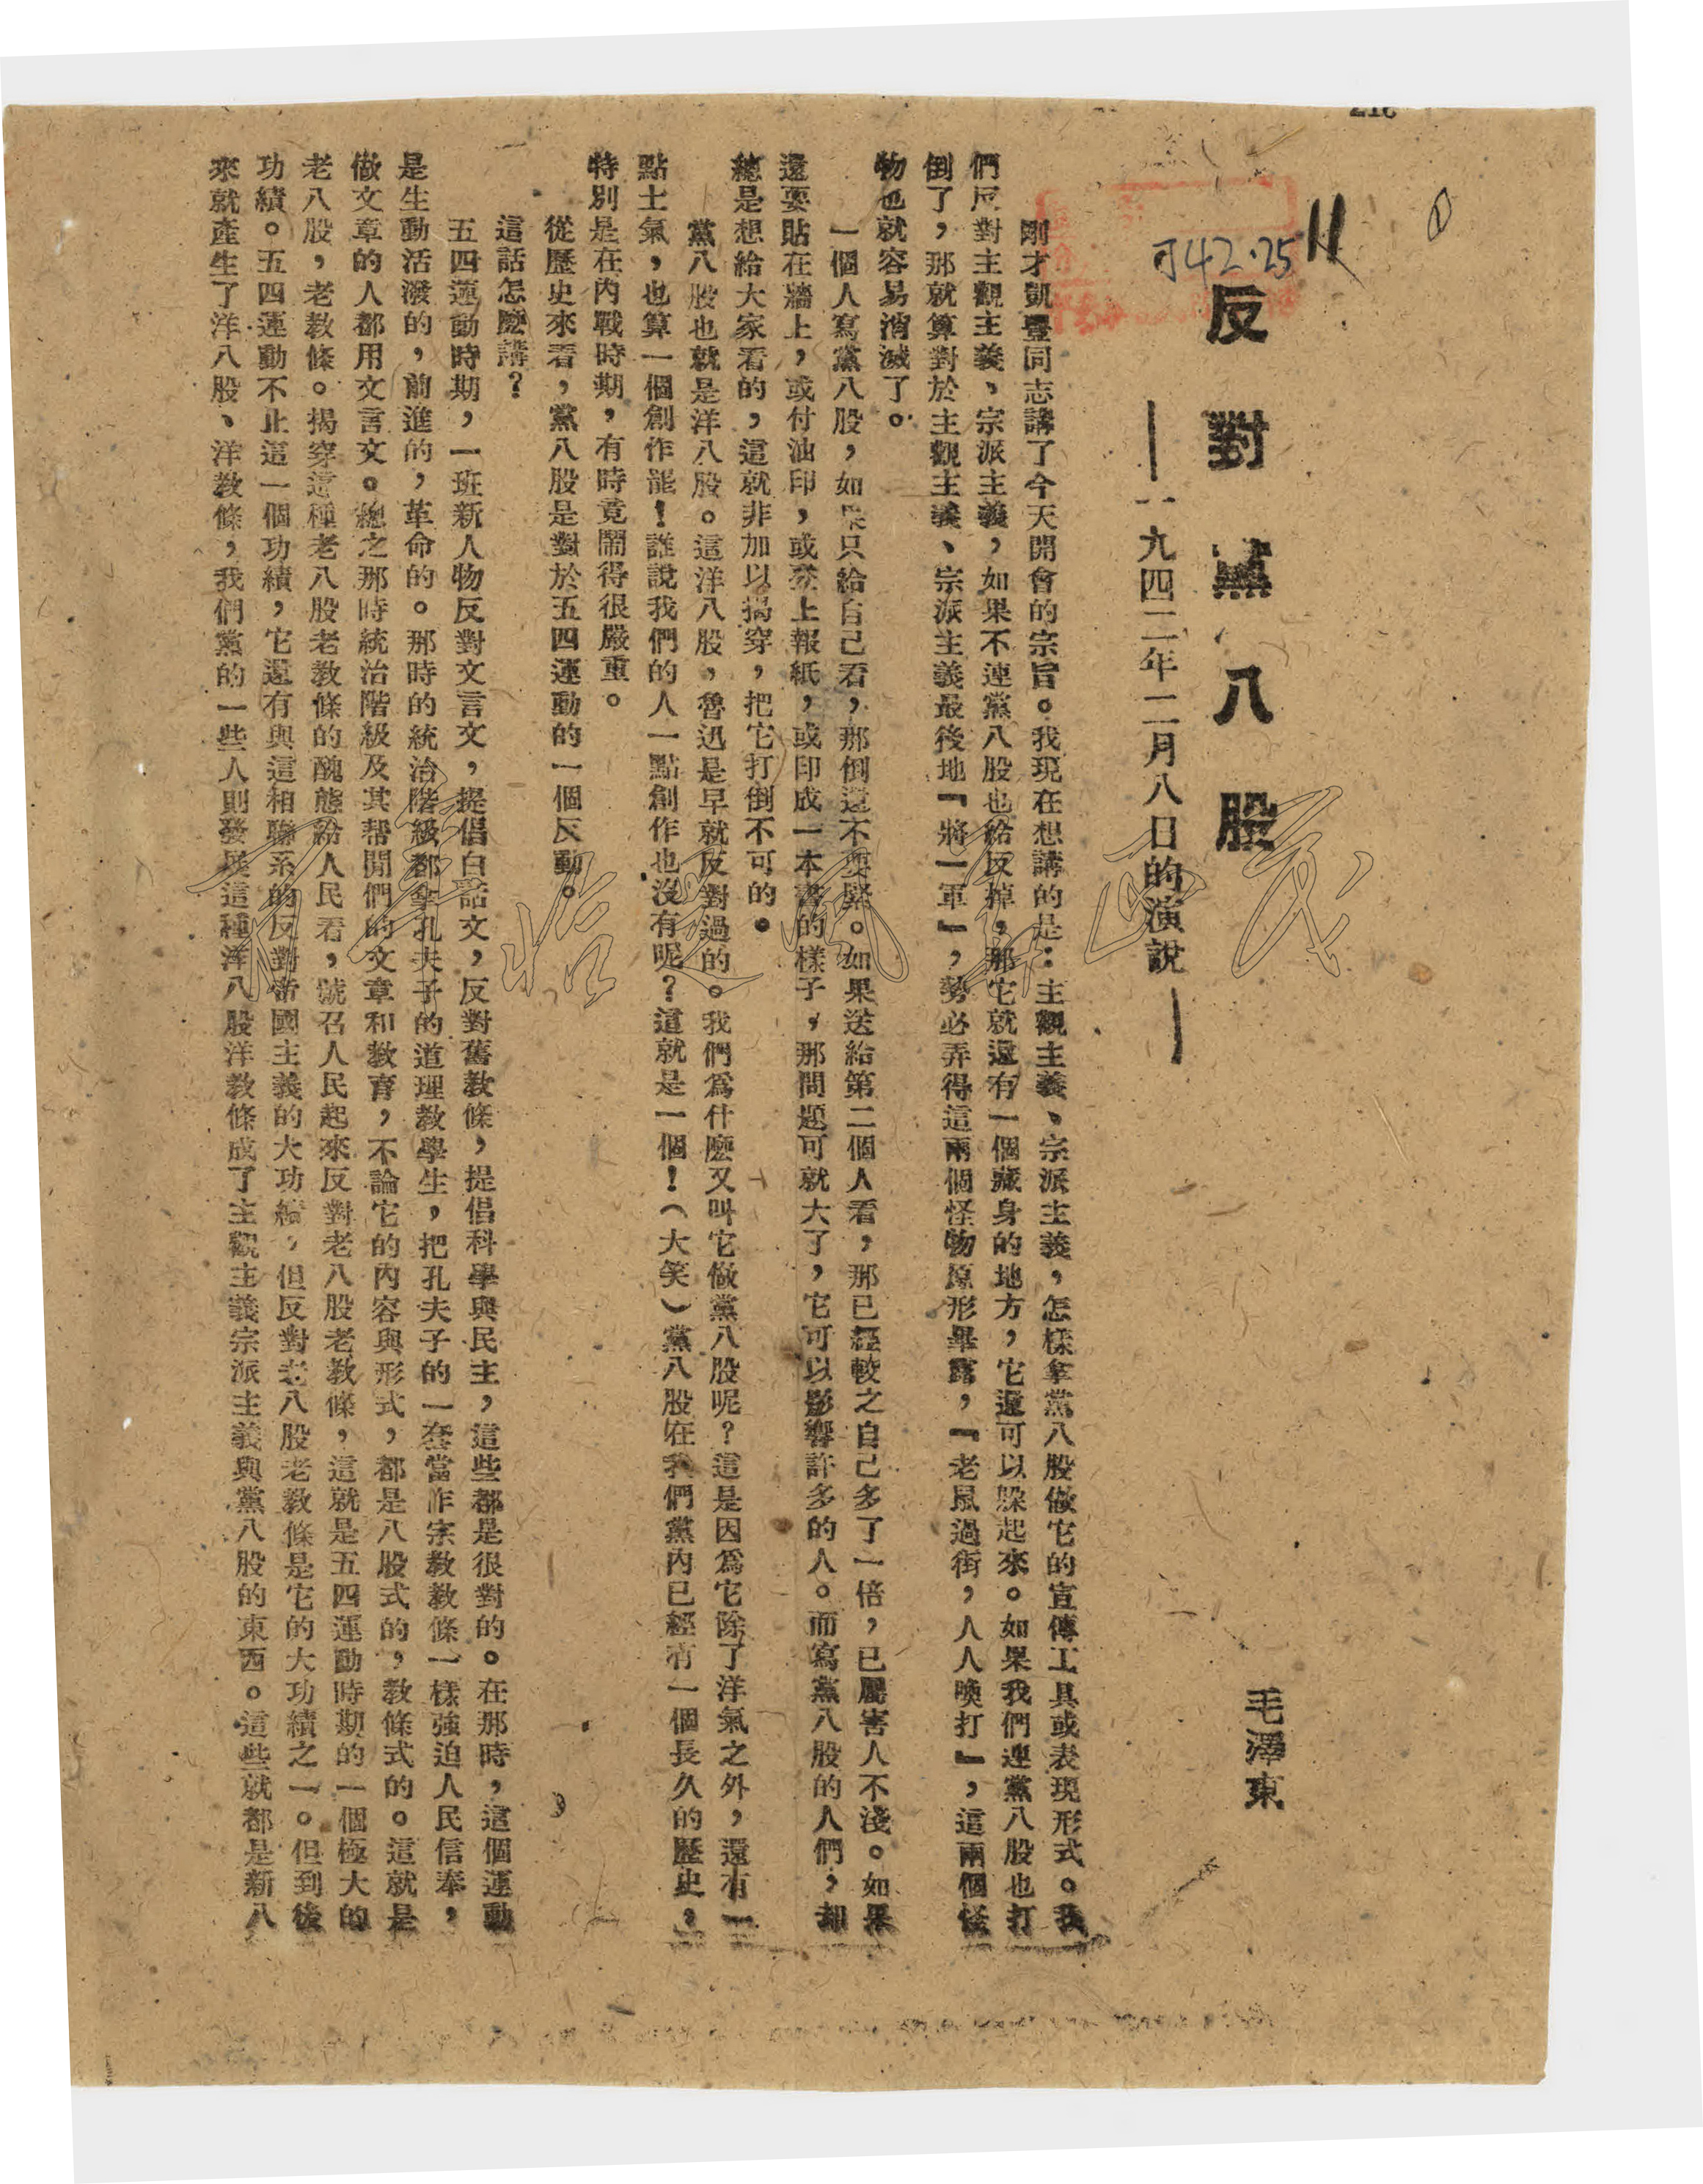 反對黨八股
——一九四二年二月八日的演說——
毛澤東
可42.25
11
剛才凱豐同志講了今天開會的宗旨。我現在想講的是：主觀主義、宗派主義，怎樣拿黨八股做它的宣傳工具或表現形式。我
們反對主觀主義、宗派主義，如果不連黨八股也給反掉，那它就還有一個藏身的地方，它還可以躲起來。如果我們連黨八股也打
倒了，那就算對於主觀主義、宗派主義最後地『將一軍』，勢必弄得這兩個怪物原形畢露，『老鼠過街，人人喚打』，這兩個怪
物也就容易消滅了。
一個人寫黨八股，如果只給自己看，那倒還不要緊。如果送給第二個人看，那已經較之自己多了一倍，已屬害人不淺。如果
還要貼在牆上，或付油印，或登上報紙，或印成一本書的樣子，那問題可就大了，它可以影響許多的人。而寫黨八股的人們，却
總是想給大家看的，這就非加以揭穿，把它打倒不可的。
黨八股也就是洋八股。這洋八股，魯迅是早就反對過的。我們爲什麼又叫它做黨八股呢？這是因爲它除了洋氣之外，還有一
點土氣，也算一個創作罷！誰說我們的人一點創作也沒有呢？這就是一個！（大笑）黨八股在我們黨內已經有一個長久的歷史，
特別是在內戰時期，有時竟鬧得很嚴重。
從歷史來看，黨八股是對於五四運動的一個反動。
這話怎麼講？
五四運動時期，一班新人物反對文言文，提倡白話文，反對舊教條，提倡科學與民主，這些都是很對的。在那時，這個運動
是生動活潑的，前進的，革命的。那時的統治階級都拿孔夫子的道理教學生，把孔夫子的一套當作宗教教條一樣強迫人民信奉，
做文章的人都用文言文。總之那時統治階級及其帮閒們的文章和教育，不論它的內容與形式，都是八股式的，教條式的。這就是
老八股，老教條。揭穿這種老八股老教條的醜態給人民看，號召人民起來反對老八股老教條，這就是五四運動時期的一個極大的
功績。五四運動不止這一個功績，它還有與這相聯系的反對帝國主義的大功績，但反對老八股老教條是它的大功績之一。但到後
來就產生了洋八股、洋教條，我們黨的一些人則發展這種洋八股洋教條成了主觀主義宗派主義與黨八股的東西。這些就都是新八